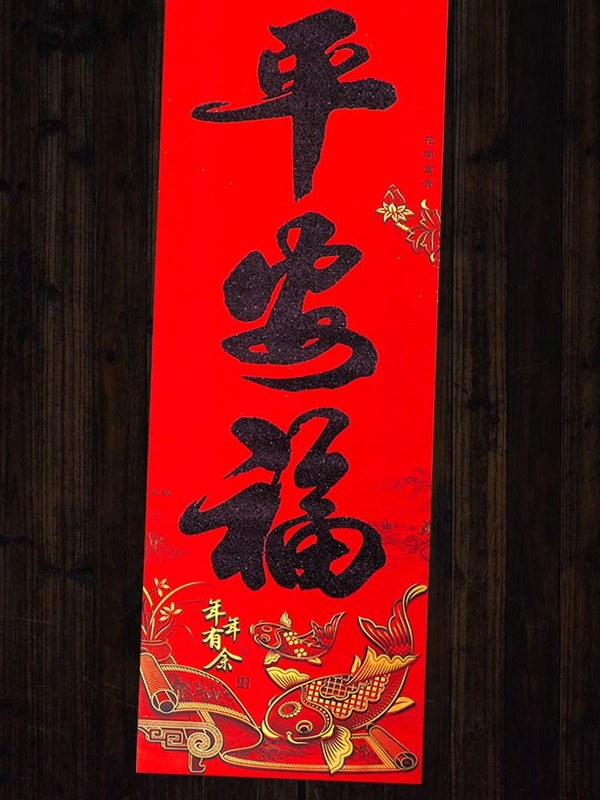 平安福
花開富貴
年年有余